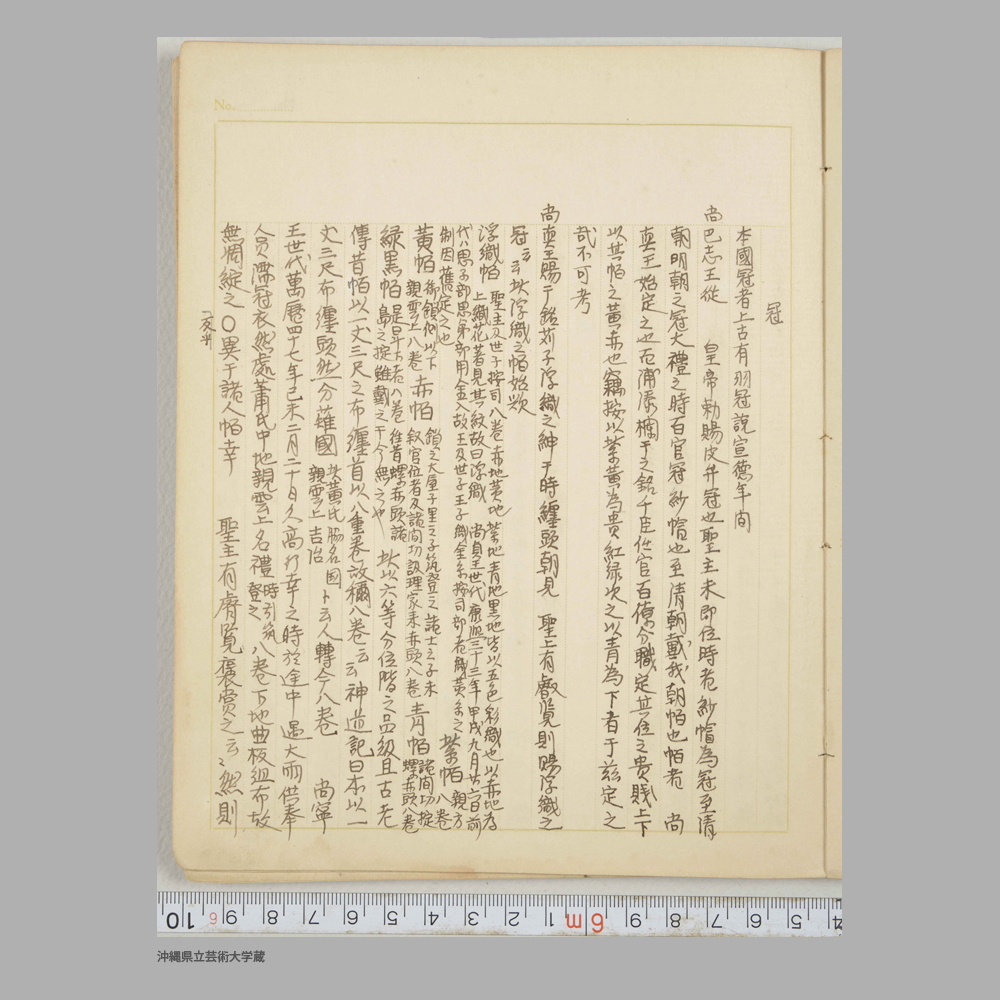 No.
冠
本國冠者上古有羽冠說宣德年间
尚巴志王從　皇帝勅賜皮弁冠也聖主未即位時者紗帽為冠至清
朝明朝之冠大禮之時百官冠紗帽也至清朝戴我朝帕也帕者　尚
真王始定之也百浦添欄干之銘千臣任官百僚分職定其位之貴賤上下
以其帕之黃赤也竊按以紫黃為貴紅綠次之以青為下者于兹定之
哉不可考
尚真王賜于銘苅子浮織之紳于時纏頭朝見　聖上有叡覧則賜浮織之
冠云云此浮織之帕始歟
浮織帕　聖主及世子按司八卷赤地黃地紫地青地黑地皆以五色彩織也以赤地為
上織花著見其紋故曰浮織　尚貞王世代康熙三十三年甲戌九月廿六日前
代八思子部思弟部用金入故王及世子王子織金糸按司部者織黃糸之
制因舊定之也　紫帕　親方八卷
黃帕　御鎖側以下親雲上八卷　赤帕　鎖之大屋子里之子筑登之諸士之子未
叙官位者及諸间切諸理家来赤頭八卷　青帕　諸间切掟螺赤頭八卷
綠黑帕　是早下者八卷往昔螺赤頭諸
島之掟雖戴之于今無之也　此以六等分位階之品級且古老
傳昔帕以一丈三尺之布纏首以八重卷故稱八卷云云神道記曰本以一
丈三尺布纏頭然一分蕹國　此黃氏脇名国親雲上吉治　ト云人轉今八卷　尚寧
王世代萬歷四十七年己未二月二十日久高行幸之時於途中遇大雨供奉
人員濡冠衣然處蕭氏中地親雲上名禮時引筑登之八卷下地曲板組布故
無凋綻之〇異于諸人帕幸　聖主有睿覧褒賞之云云然則
沖縄県立芸術大学蔵